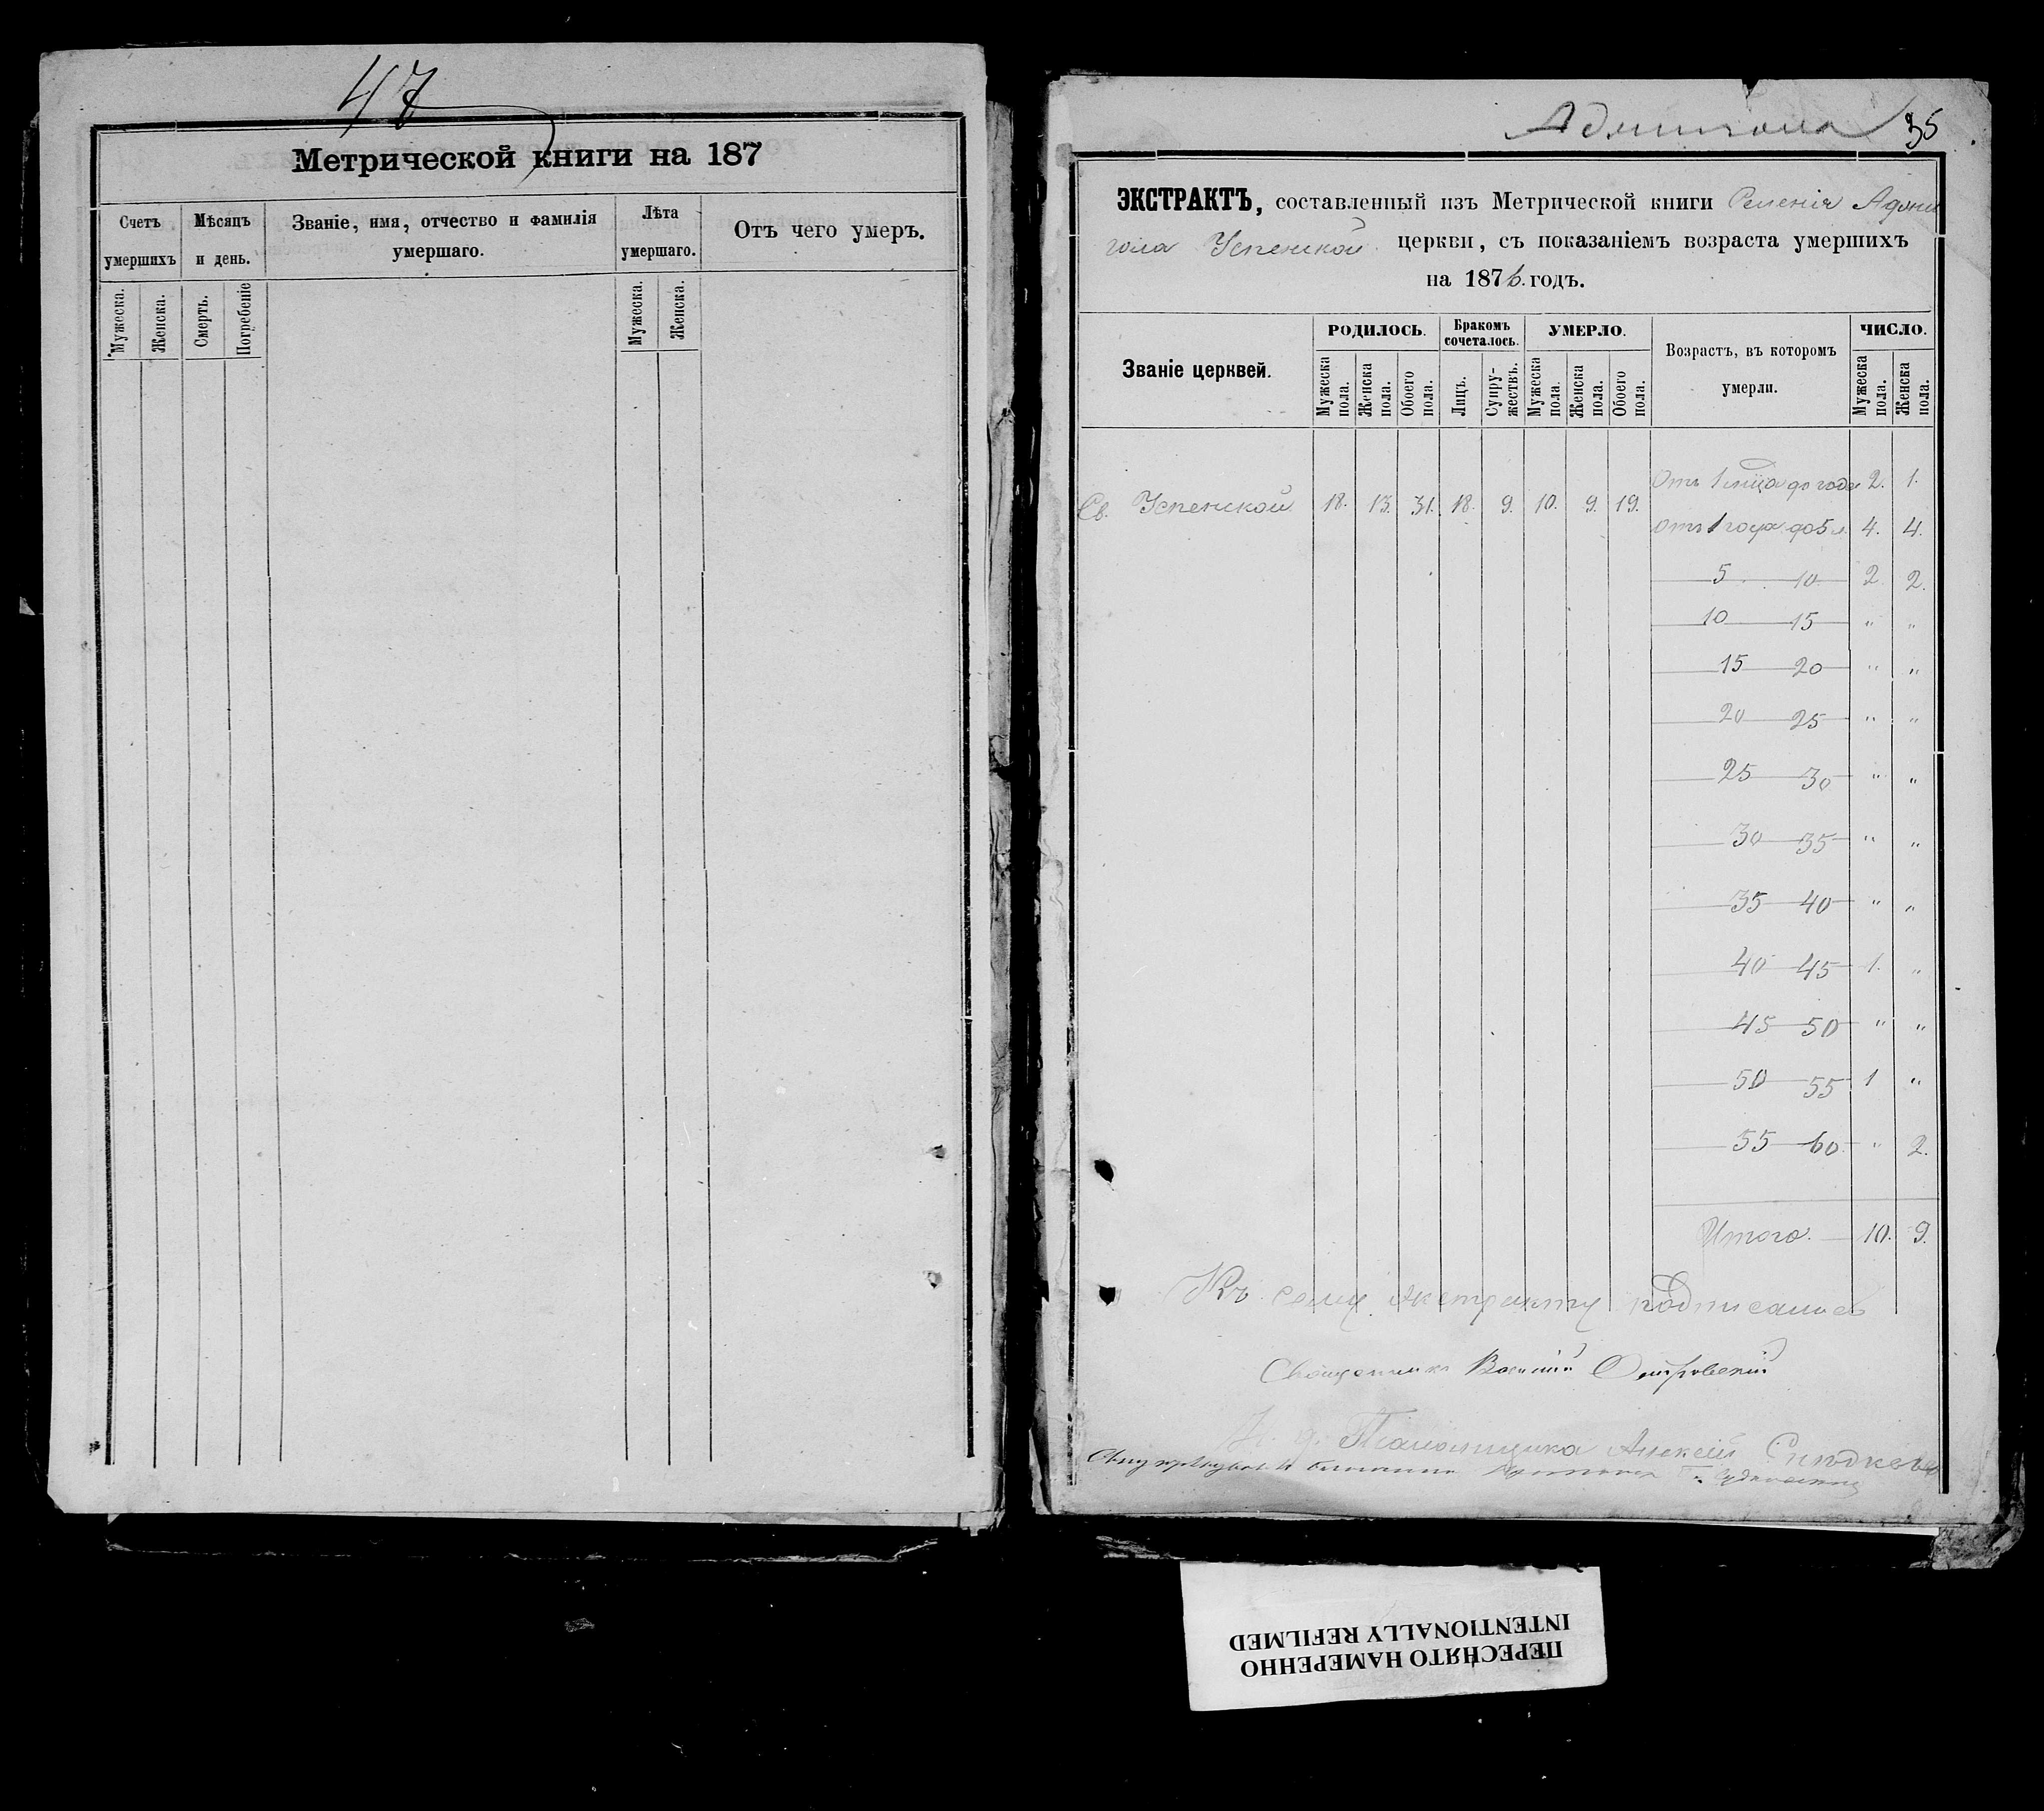 47
Метрической книги на 187
Счетъ умершихъ
Мѣсяцъ и день.
Званіе, имя, отчество и фамилія умершаго.
Лѣта умершаго.
Отъ чего умеръ.
Мужеска.
Женска.
Смерть.
Погребеніе
Мужеска.
Женска.
35
ЭКСТРАКТЪ, составленный изъ Метрической книги Селенія Адони
гола Успенской церкви, съ показаніемъ возраста умершихъ
на 1876. годъ.
Званіе церквей.
РОДИЛОСЬ.
Бракомъ сочеталось.
УМЕРЛО.
Возрастъ, въ которомъ умерли.
ЧИСЛО.
Мужеска пола.
Женска пола.
Обоего пола.
Лицъ.
Супружествъ.
Мужеска пола.
Женска пола.
Обоего пола.
Мужеска пола.
Женска пола.
Отъ 1 мца до года 2. 1.
Св. Успенской 18. 13. 31. 18. 9. 10. 9. 19.
Отъ 1 года до 5 л. 4. 4.
5 10 2. 2.
10 15 " "
15 20 " "
20 25 " "
25 30 " "
30 35 " "
35 40 " "
40 45 1. "
45 50 " "
50 55 1 "
55 60 " 2.
Итого. 10. 9.
Къ сему экстракту подписались
Священникъ
И. д. Псаломщика Алексѣй
ПЕРЕСНЯТО НАМЕРЕННО
INTENTIONALLY REFILMED